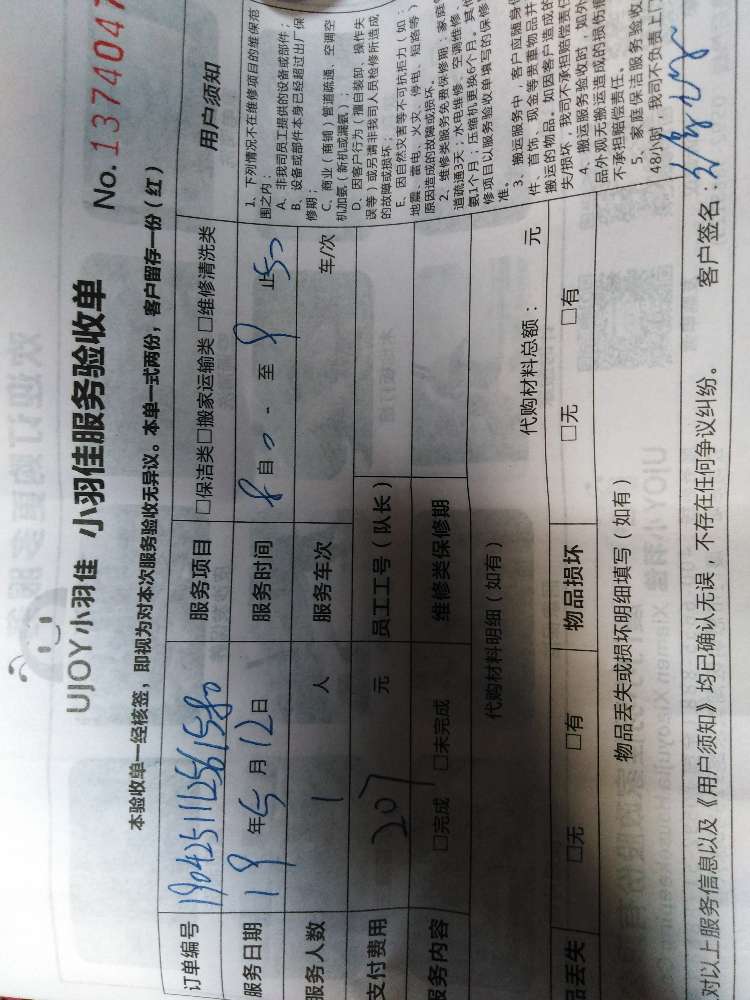 UJOY小羽佳 小羽佳服务验收单
No. 1374047
本验收单一经核签，即视为对本次服务验收无异议。本单一式两份，客户留存一份（红）
订单编号 1904251112561580 服务项目 □保洁类□搬家运输类 □维修清洗类
服务日期 19 年 5 月 12 日 服务时间 自 至 止
服务人数 1 人 服务车次 车/次
支付费用 207 元 员工工号（队长）
服务内容 □完成 □未完成 维修类保修期
代购材料明细（如有） 代购材料总额： 元
品丢失 □无 □有 物品损坏 □无 □有
物品丢失或损坏明细填写（如有）
用户须知
1、下列情况不在维修项目的维保范
围之内：
A、非我司员工提供的设备或部件；
B、设备或部件本身已经超过出厂保
修期；
C、商业（商铺）管道疏通、空调空
机加氨（新机或漏氨）；
D、因客户行为（擅自装卸、操作失
误等）或另请非我司人员检修所造成
的故障或损坏；
E、因自然灾害等不可抗拒力（如：
地震、雷电、火灾、停电、短路等）
原因造成的故障或损坏。
2、维修类服务免费保修期：家庭
道疏通3天；水电维修、空调维修、
氨1个月；压缩机更换6个月。其他
修项目以服务验收单填写的保修
准。
3、搬运服务中，客户应随身
件、首饰、现金等贵重物品并
搬运的物品。如因客户造成的
失/损坏，我司不承担赔偿责任
4、搬运服务验收时，如外
品外观无搬运造成的损伤报
不承担赔偿责任。
5、家庭保洁服务验收
48小时，我司不负责上门
对以上服务信息以及《用户须知》均已确认无误，不存在任何争议纠纷。 客户签名：